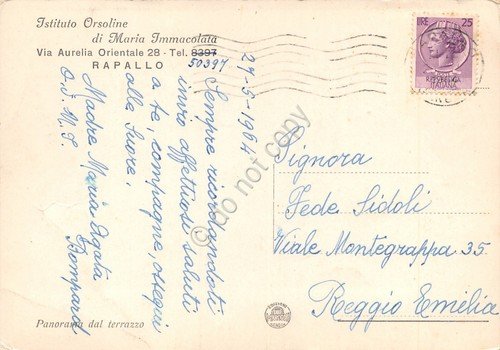 Istituto Orsoline
di Maria Immacolata
Via Aurelia Orientale 28 - Tel. 8397
50397
RAPALLO
27-5-1964
Sempre ricordandoti
invio affettuosi saluti
a te, compagne, ossequi
alle Suore.
Madre Maria Agata
Bompard
O.d.M.I.
LIRE 25
REPUBBLICA
ITALIANA
Signora
Fede Sidoli
Viale Montegrappa 35
Reggio Emilia
Panorama dal terrazzo
do not copy